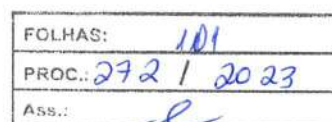 FOLHAS: 101
PROC.: 272 / 2023
Ass.: